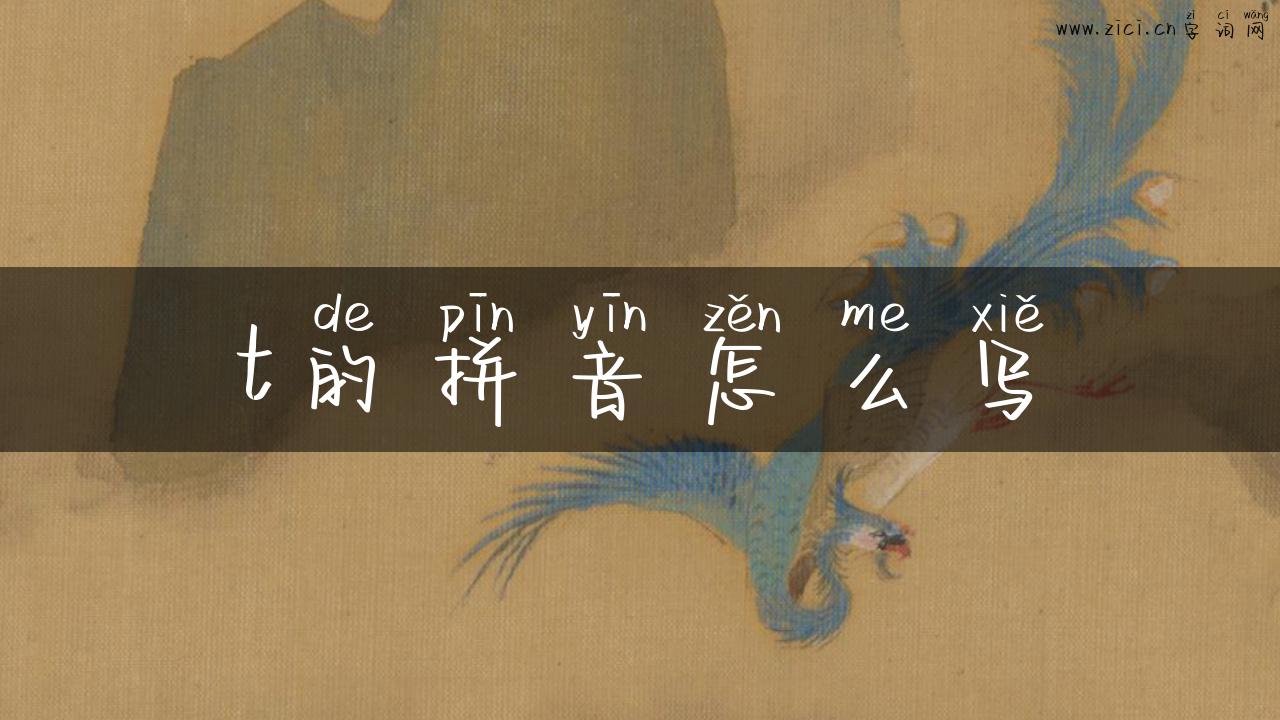 zì cí wǎng
www.zici.cn 字词网
de pīn yīn zěn me xiě
t 的拼音怎么写